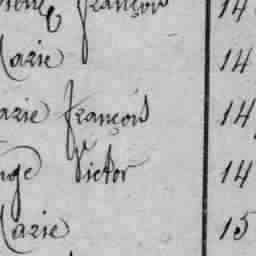 François 14
Marie 14
Marie François 14
Ange Victor 14
Marie 15